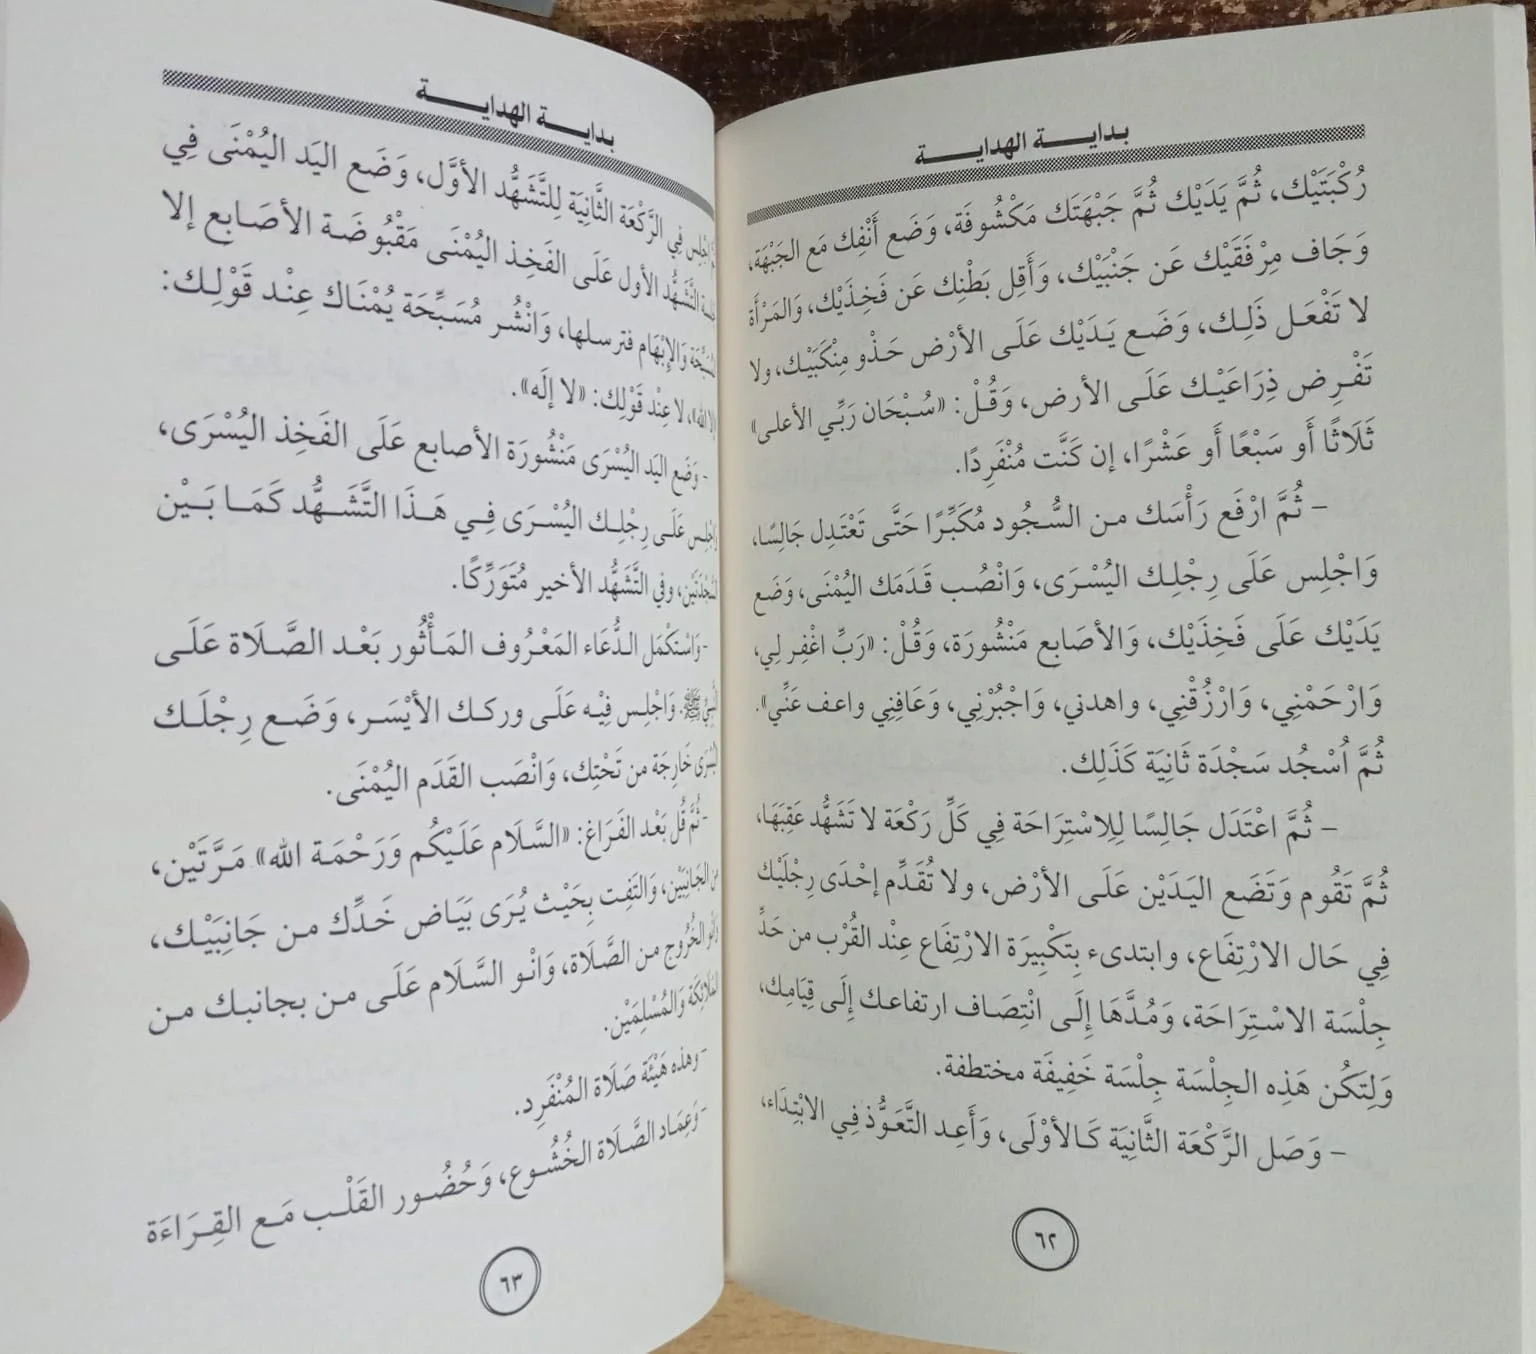 بدايـــــة الهدايـــــة
رُكْبَتَيْك، ثُمَّ يَدَيْك ثُمَّ جَبْهَتَك مَكْشُوفَة، وَضَع أَنْفِك مَع الجَبْهَة،
وَجَاف مِرْفَقَيْك عَن جَنْبَيْك، وَأَقِل بَطْنِك عَن فَخِذَيْك، وَالمَرْأَة
لا تَفْعَل ذَلِك، وَضَع يَدَيْك عَلَى الأرْض حَذْو مِنْكَبَيْك، ولا
تَفْرِض ذِرَاعَيْك عَلَى الأرض، وَقُلْ: «سُبْحَان رَبِّي الأعلى»
ثَلَاثًا أَو سَبْعًا أَو عَشْرًا، إن كَنَّت مُنْفَرِدًا.
– ثُمَّ ارْفَع رَأْسَك من السُّجُود مُكَبِّرًا حَتَّى تَعْتَدِل جَالِسًا،
وَاجْلِس عَلَى رِجْلِك اليُسْرَى، وَانْصُب قَدَمَك اليُمْنَى، وَضَع
يَدَيْك عَلَى فَخِذَيْك، وَالأصَابِع مَنْشُورَة، وَقُلْ: «رَبِّ اغْفِر لِي،
وَارْحَمْنِي، وَارْزُقْنِي، واهدني، وَاجْبُرْنِي، وَعَافِنِي واعف عَنِّي».
ثُمَّ اُسْجُد سَجْدَة ثَانِيَة كَذَلِك.
– ثُمَّ اعْتَدَل جَالِسًا لِلِاسْتِرَاحَة فِي كَلِّ رَكْعَة لا تَشَهُّد عَقِبَهَا،
ثُمَّ تَقُوم وَتَضَع اليَدَيْن عَلَى الأرْض، ولا تُقَدِّم إحْدَى رِجْلَيْك
فِي حَال الارْتِفَاع، وابتدىء بِتَكْبِيرَة الارْتِفَاع عِنْد القُرْب من حَدِّ
جِلْسَة الاسْتِرَاحَة، وَمُدَّهَا إلَى انْتِصَاف ارتفاعك إلَى قِيَامِك،
وَلِتَكُن هَذِه الجِلْسَة جِلْسَة خَفِيفَة مختطفة.
– وَصَل الرَّكْعَة الثَّانِيَة كَالأوْلَى، وَأَعِد التَّعَوُّذ فِي الابْتِدَاء،
٦٢
بدايـــــة الهدايـــــة
اجْلِس فِي الرَّكْعَة الثَّانِيَة لِلتَّشَهُّد الأوَّل، وَضَع اليَد اليُمْنَى فِي
التَّشَهُّد الأول عَلَى الفَخِذ اليُمْنَى مَقْبُوضَة الأصَابِع إلا
وَالإبْهَام فترسلها، وَانْشُر مُسَبِّحَة يُمْنَاك عِنْد قَوْلِك:
الله»، لا عِنْد قَوْلِك: «لا إلَه».
- وَضَع اليَد اليُسْرَى مَنْشُورَة الأصابع عَلَى الفَخِذ اليُسْرَى،
عَلَى رِجْلِك اليُسْرَى فِي هَذَا التَّشَهُّد كَمَا بَيْن
السُّجْدَتَيْن، وفي التَّشَهُّد الأخير مُتَوَرِّكًا.
-وَاسْتَكْمَل الدُّعَاء المَعْرُوف المَأْثُور بَعْد الصَّلَاة عَلَى
ﷺ. وَاجْلِس فِيْه عَلَى وركك الأيْسَر، وَضَع رِجْلَك
خَارِجَة من تَحْتِك، وَانْصَب القَدَم اليُمْنَى.
-ثُمَّ قُل بَعْد الفَرَاغ: «السَّلَام عَلَيْكُم وَرَحْمَة الله» مَرَّتَيْن،
من الجَانِبَيْن، وَالتَفِت بِحَيْث يُرَى بَيَاض خَدِّك من جَانِبَيْك،
الخُرُوج من الصَّلَاة، وَانْو السَّلَام عَلَى من بجانبك من
المَلَائِكَة وَالمُسْلِمَيْن.
- وهذه هَيْئَة صَلَاة المُنْفَرِد.
- وَعِمَاد الصَّلَاة الخُشُوع، وَحُضُور القَلْب مَع القِرَاءَة
٦٣